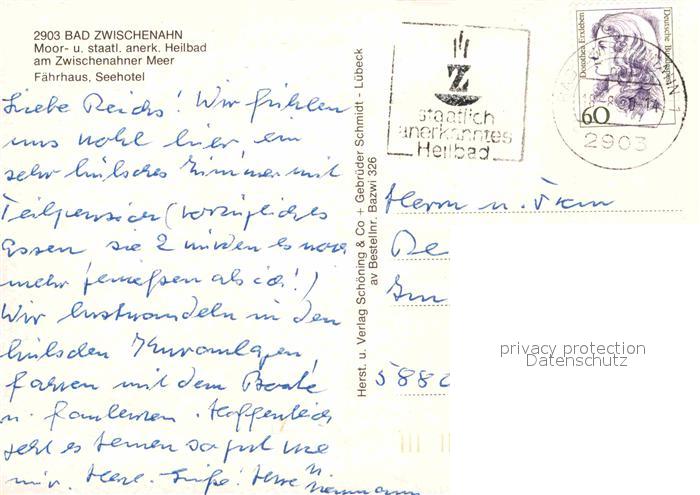 2903 BAD ZWISCHENAHN
Moor- u. staatl. anerk. Heilbad
am Zwischenahner Meer
Fährhaus, Seehotel
Liebe Reichs! Wir fühlen
uns wohl hier, ein
sehr hübsches Zimmer mit
Teilpension (vorzügliches
Essen, sie 2 würden es noch
mehr genießen als ich!)
Wir lustwandeln in den
hübschen Kuranlagen,
fahren mit dem Boote
u. faulenzen. Hoffentlich
geht es Ihnen so gut wie
mir. Herzl. Grüße! Ihre
Herst. u. Verlag Schöning & Co + Gebrüder Schmidt - Lübeck
av Bestellnr. Bazwi 326
Z
staatlich
anerkanntes
Heilbad
Dorothea Erxleben
Deutsche Bundespost
60
2903
Herrn u. Frau
5882
privacy protection
Datenschutz